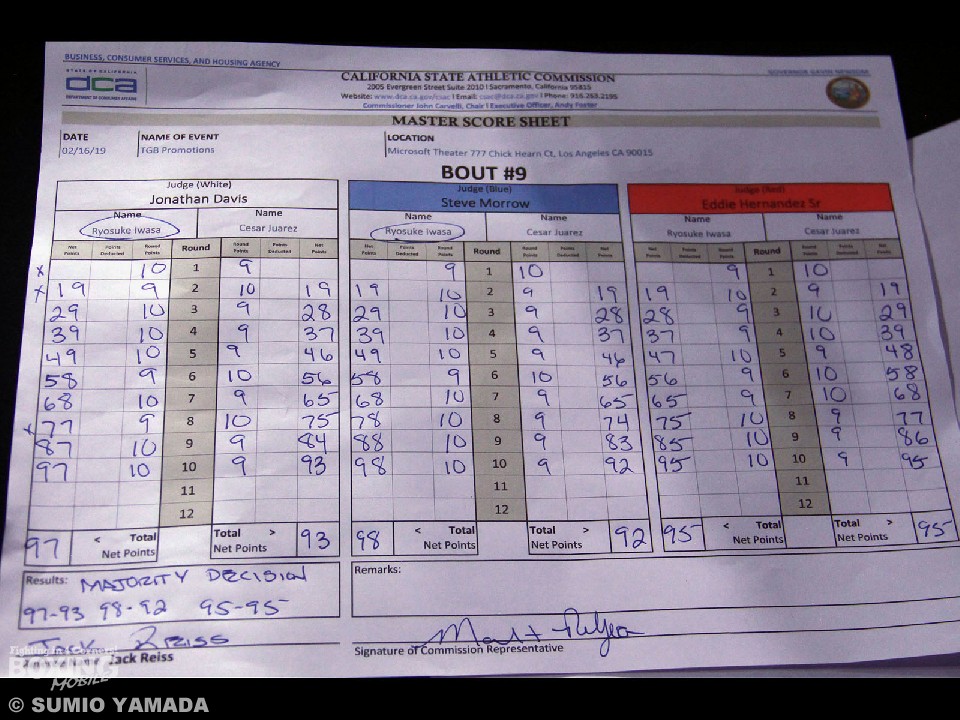 BUSINESS, CONSUMER SERVICES, AND HOUSING AGENCY
GOVERNOR GAVIN NEWSOM
STATE OF CALIFORNIA
dca
DEPARTMENT OF CONSUMER AFFAIRS
CALIFORNIA STATE ATHLETIC COMMISSION
2005 Evergreen Street Suite 2010 | Sacramento, California 95815
Website: www.dca.ca.gov/csac | Email: csac@dca.ca.gov | Phone: 916.263.2195
Commissioner John Carvelli, Chair | Executive Officer, Andy Foster
MASTER SCORE SHEET
DATE NAME OF EVENT LOCATION
02/16/19 TGB Promotions Microsoft Theater 777 Chick Hearn Ct, Los Angeles CA 90015
BOUT #9
Judge (White) Judge (Blue) Judge (Red)
Jonathan Davis Steve Morrow Eddie Hernandez Sr
Name Name Name Name Name Name
Ryosuke Iwasa Cesar Juarez Ryosuke Iwasa Cesar Juarez Ryosuke Iwasa Cesar Juarez
Net Points Points Deducted Round Points Round Round Points Points Deducted Net Points Net Points Points Deducted Round Points Round Round Points Points Deducted Net Points Net Points Points Deducted Round Points Round Round Points Points Deducted Net Points
x 10 1 9 9 1 10 9 1 10
x 19 9 2 10 19 19 10 2 9 19 19 10 2 9 19
29 10 3 9 28 29 10 3 9 28 28 9 3 10 29
39 10 4 9 37 39 10 4 9 37 37 9 4 10 39
49 10 5 9 46 49 10 5 9 46 47 10 5 9 48
58 9 6 10 56 58 9 6 10 56 56 9 6 10 58
68 10 7 9 65 68 10 7 9 65 65 9 7 10 68
x 77 9 8 10 75 78 10 8 9 74 75 10 8 9 77
87 10 9 9 84 88 10 9 9 83 85 10 9 9 86
97 10 10 9 93 98 10 10 9 92 95 10 10 9 95
11 11 11
12 12 12
97 < Total Net Points Total > Net Points 93 98 < Total Net Points Total > Net Points 92 95 < Total Net Points Total > Net Points 95
Results: MAJORITY DECISION Remarks:
97-93 98-92 95-95
Jack Reiss
Jack Reiss
Signature of Commission Representative
MOBILE
© SUMIO YAMADA